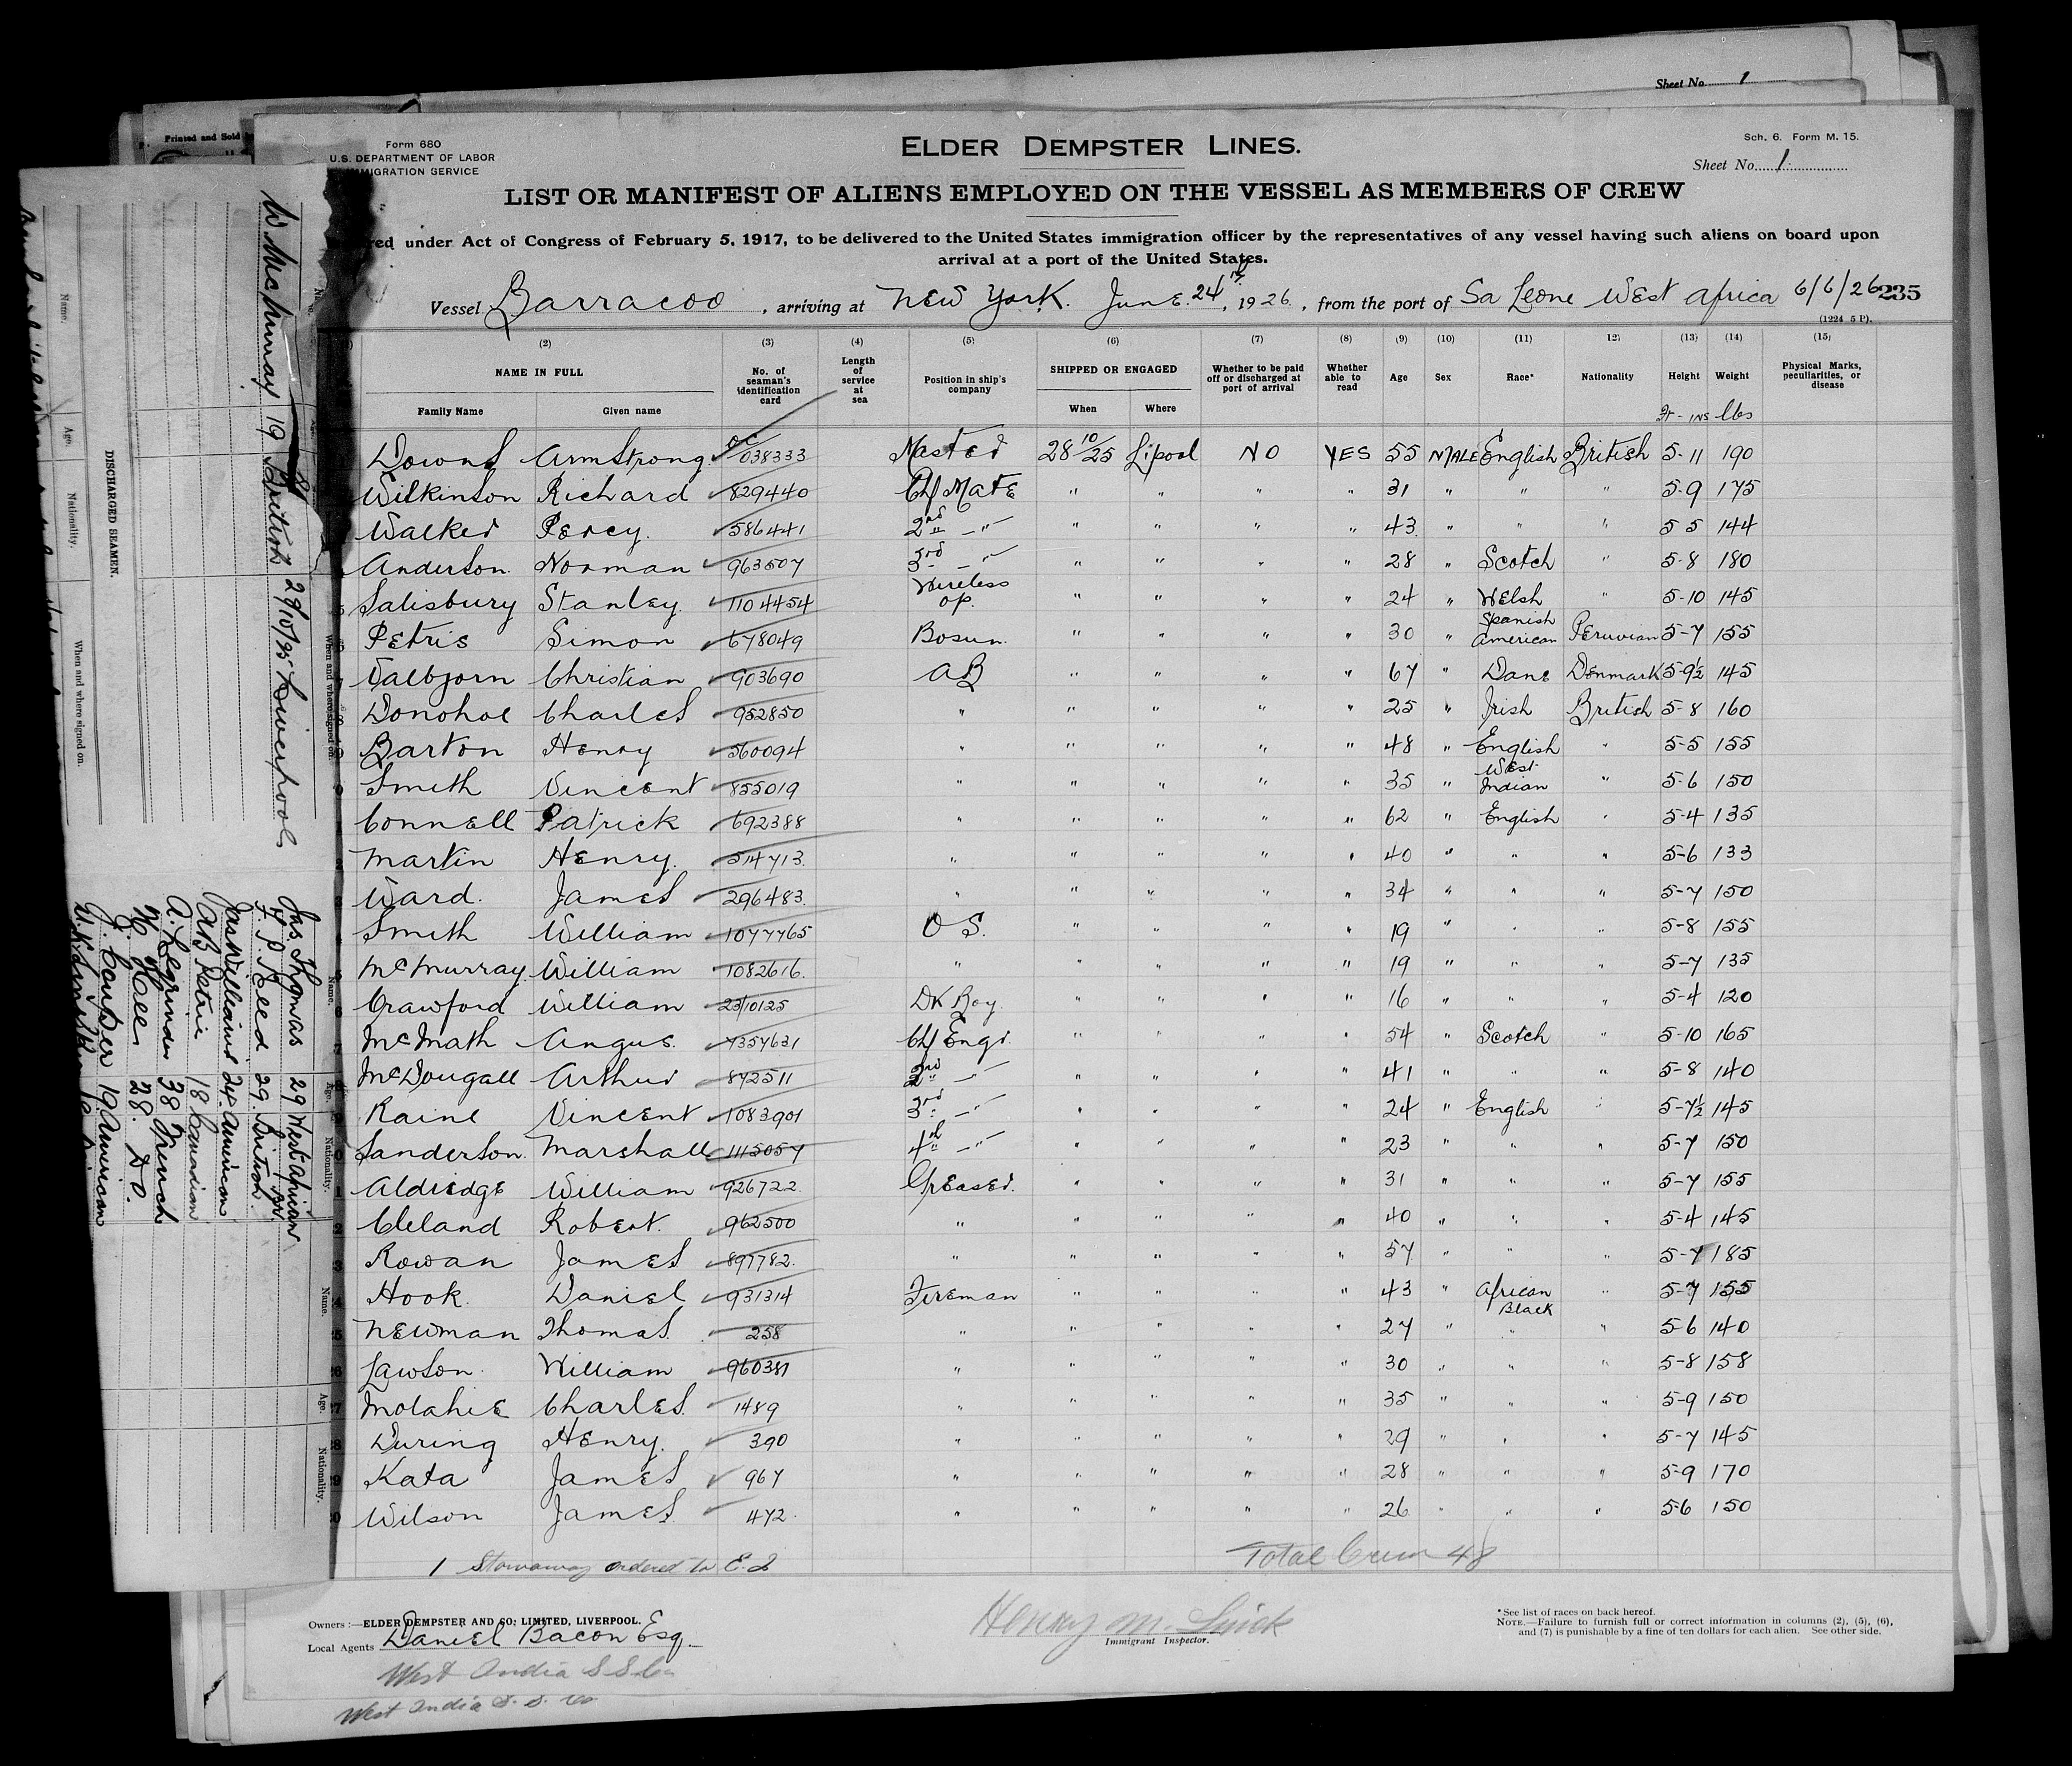 Sheet No. 1
Printed and Sold
Form 680
U.S. DEPARTMENT OF LABOR
IMMIGRATION SERVICE
ELDER DEMPSTER LINES.
Sch. 6. Form M. 15.
Sheet No. 1
LIST OR MANIFEST OF ALIENS EMPLOYED ON THE VESSEL AS MEMBERS OF CREW
red under Act of Congress of February 5, 1917, to be delivered to the United States immigration officer by the representatives of any vessel having such aliens on board upon
arrival at a port of the United States.
Vessel Barracoo, arriving at New York. June 24th, 1926, from the port of Sa Leone West Africa 6/6/26 235
(1224 5 P).
(2) (3) (4) (5) (6) (7) (8) (9) (10) (11) 12) (13) (14) (15)
NAME IN FULL No. of seaman's identification card Length of service at sea Position in ship's company SHIPPED OR ENGAGED Whether to be paid off or discharged at port of arrival Whether able to read Age Sex Race* Nationality Height Weight Physical Marks, peculiarities, or disease
Family Name Given name When Where Ft - ins lbs
Downs Armstrong 038333 Master 28 10/25 Lipool NO YES 55 MALE English British 5-11 190
Wilkinson Richard 829440 Chf Mate " " " " 31 " " " 5-9 175
Walker Percy. 586441 2nd - " " " " " 43 " " " 5 5 144
Anderson Norman 963507 3rd - " " " " " 28 " Scotch " 5-8 180
5 Salisbury Stanley 1104454 Wireless op. " " " " 24 " Welsh " 5-10 145
Petris Simon 678049 Bosun. " " " " 30 " Spanish American Peruvian 5-7 155
7 Dalbjorn Christian 903690 AB " " " " 67 " Dane Denmark 5-9½ 145
Donohoe Charles 952850 " " " " " 25 " Irish British 5-8 160
9 Barton Henry 560094 " " " " " 48 " English " 5-5 155
0 Smith Vincent 855019 " " " " " 35 " West Indian " 5-6 150
1 Connell Patrick 692388 " " " " " 62 " English " 5-4 135
2 Martin Henry. 514713 " " " " " 40 " " " 5-6 133
3 Ward. James 296483 " " " " " 34 " " " 5-7 150
Smith William 1077765 O S. " " " " 19 " " " 5-8 155
5 McMurray William 1082616 " " " " " 19 " " " 5-7 135
6 Crawford William 23/10125 Dk Boy " " " " 16 " " " 5-4 120
7 McMath Angus. 7357631 Chf Engr. " " " " 54 " Scotch " 5-10 165
McDougall Arthur 872511 2nd - " " " " " 41 " " " 5-8 140
9 Raine Vincent 1083901 3rd - " " " " " 24 " English " 5-7½ 145
0 Sanderson Marshall 1115057 4th - " " " " " 23 " " " 5-7 150
1 Aldredge William 926722 Greaser. " " " " 31 " " " 5-7 155
2 Cleland Robert. 962500 " " " " " 40 " " " 5-4 145
3 Rowan James 897782. " " " " " 57 " " " 5-7 185
4 Hook. Daniel 931314 Fireman " " " " 43 " African Black " 5-7 155
5 Newman Thomas. 258 " " " " " 27 " " " 5-6 140
6 Lawson William 960381 " " " " " 30 " " " 5-8 158
7 Molahie Charles. 1489 " " " " " 35 " " " 5-9 150
8 During Henry. 390 " " " " " 29 " " " 5-7 145
9 Kata James 967 " " " " " 28 " " " 5-9 170
0 Wilson James. 472 " " " " " 26 " " " 5-6 150
1 Stowaway ordered to E.I
Total Crew 48
Owners:—ELDER DEMPSTER AND CO: LIMITED, LIVERPOOL.
Local Agents Daniel Bacon Esq.
West India S S Co
West India S. S. Co
Henry M.
Immigrant Inspector.
*See list of races on back hereof.
NOTE.—Failure to furnish full or correct information in columns (2), (5), (6),
and (7) is punishable by a fine of ten dollars for each alien. See other side.
British 28/10/25 Liverpool
DISCHARGED SEAMEN.
Name. Age. Nationality. When and where signed on.
Jas. Thomas 29 West African
F. P. Reed 29. British
Jas Williams 24. American
AB Petrie 18 Canadian
A. Legrinder 38 French
28. Do.
J. Couper 19 American
Name. Age. Nationality.